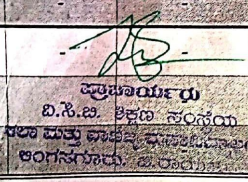 ಪ್ರಾಚಾರ್ಯರು
ವಿ.ಸಿ.ಬಿ. ಶಿಕ್ಷಣ ಸಂಸ್ಥೆಯ
ಕಲಾ ಮತ್ತು ವಾಣಿಜ್ಯ
ಲಿಂಗಸಗೂರು.